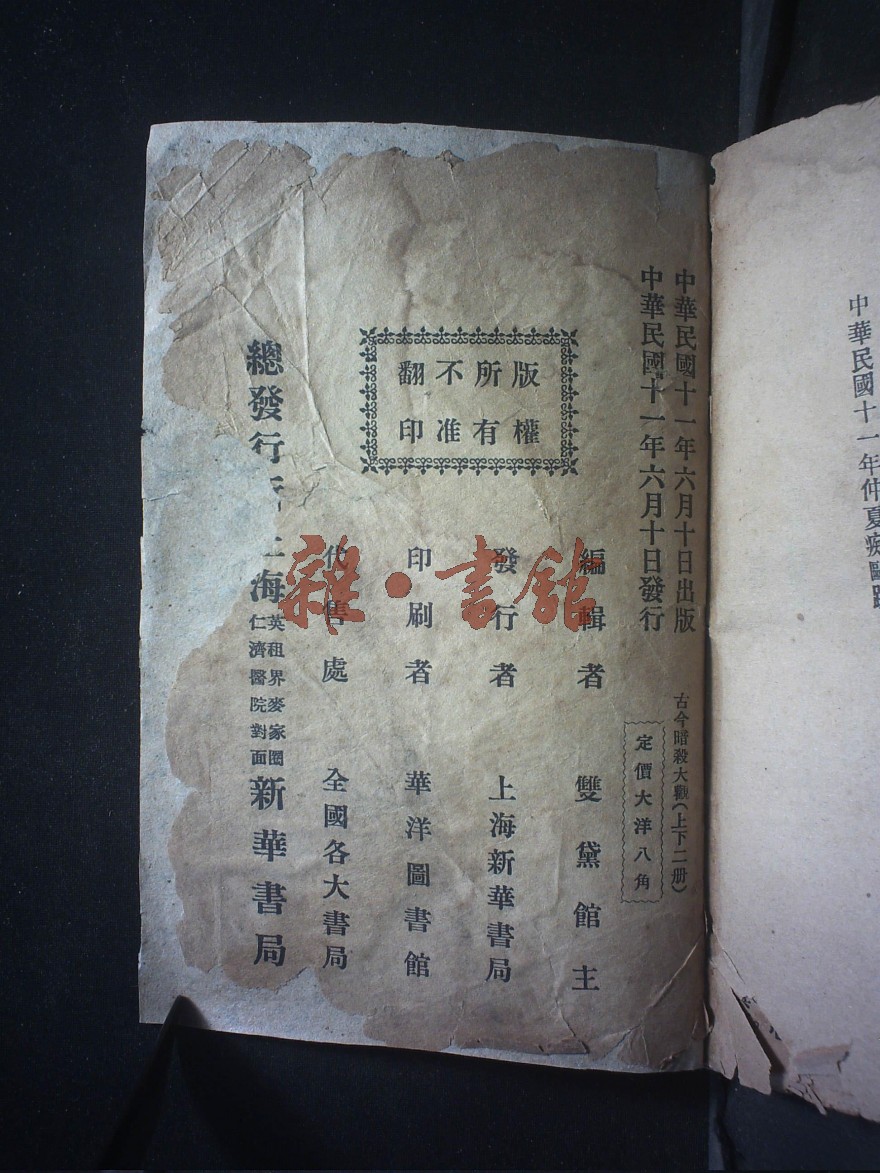 中華民國十一年仲夏
中華民國十一年六月十日出版
中華民國十一年六月十日發行
古今暗殺大觀(上下二册)
定價大洋八角
版權
所有
不准
翻印
編輯者 雙黛館主
發行者 上海新華書局
印刷者 華洋圖書館
代售處 全國各大書局
總發行 上海 英租界麥家圈
仁濟醫院對面
新華書局
雜·書館